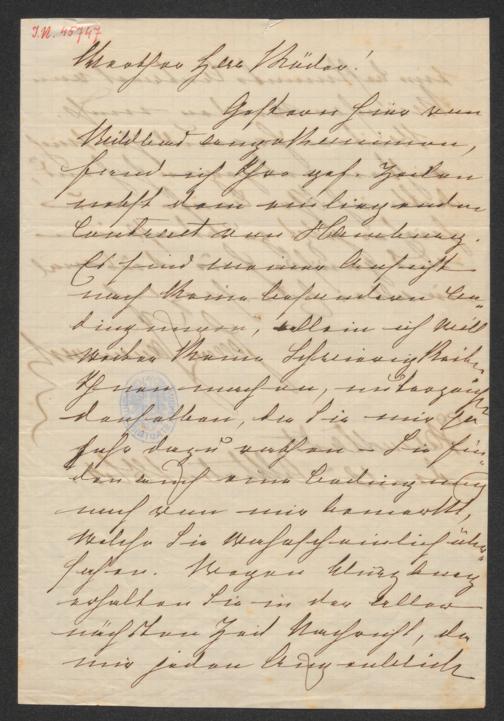 I.N. 45747
Werther Herr Röder!
Gestern hier von
Wildbad angekommen,
fand ich Ihre gef. Zeilen
nebst dem einliegenden
Contract von Hamburg.
Es sind meiner Ansicht
nach keine besonderen Be-
dingungen, allein ich will
weiter keine Schwierigkeiten
machen, unterzeichne
denselben, da Sie mir ja
sehr dazu rathen – Sie fin-
den auch eine Bedingung
noch von mir bemerkt,
welche Sie wahrscheinlich über-
sahen. Wegen Würzburg
erhalten Sie in der aller-
nächsten Zeit Nachricht, da
mir jeden Augenblick